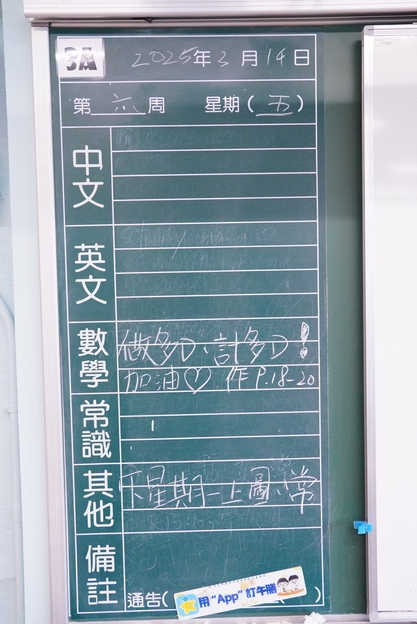 3A 2025年3月14日
第六周 星期(五)
中文
英文
數學 做多D、計多D!
加油♡ 作P.18-20
常識
其他 星期一上圖、常
備註
通告( )
用“App”訂午膳